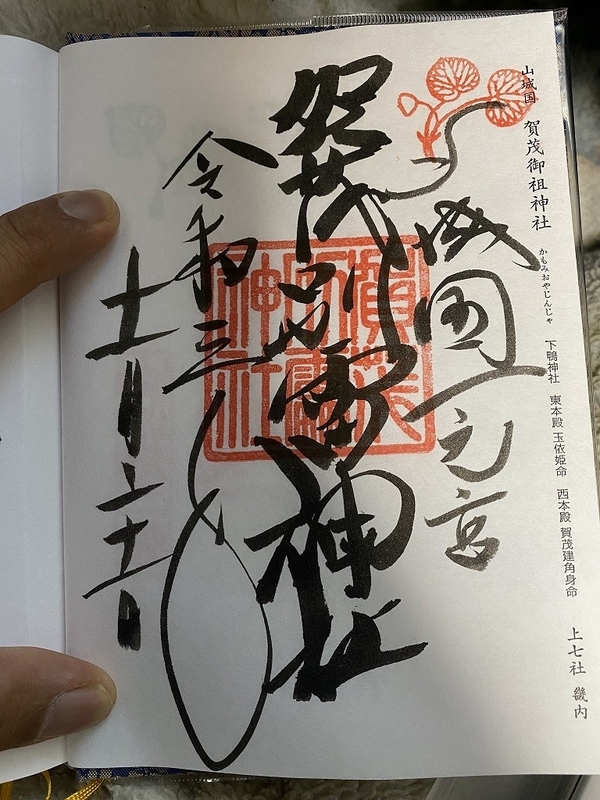 山城国 賀茂御祖神社 かもみおやじんじゃ 下鴨神社 東本殿 玉依姫命 西本殿 賀茂建角身命 上七社 畿内
山城国一之宮
賀茂別雷神社
賀茂
別雷
神社
令和三年
十一月二十一日